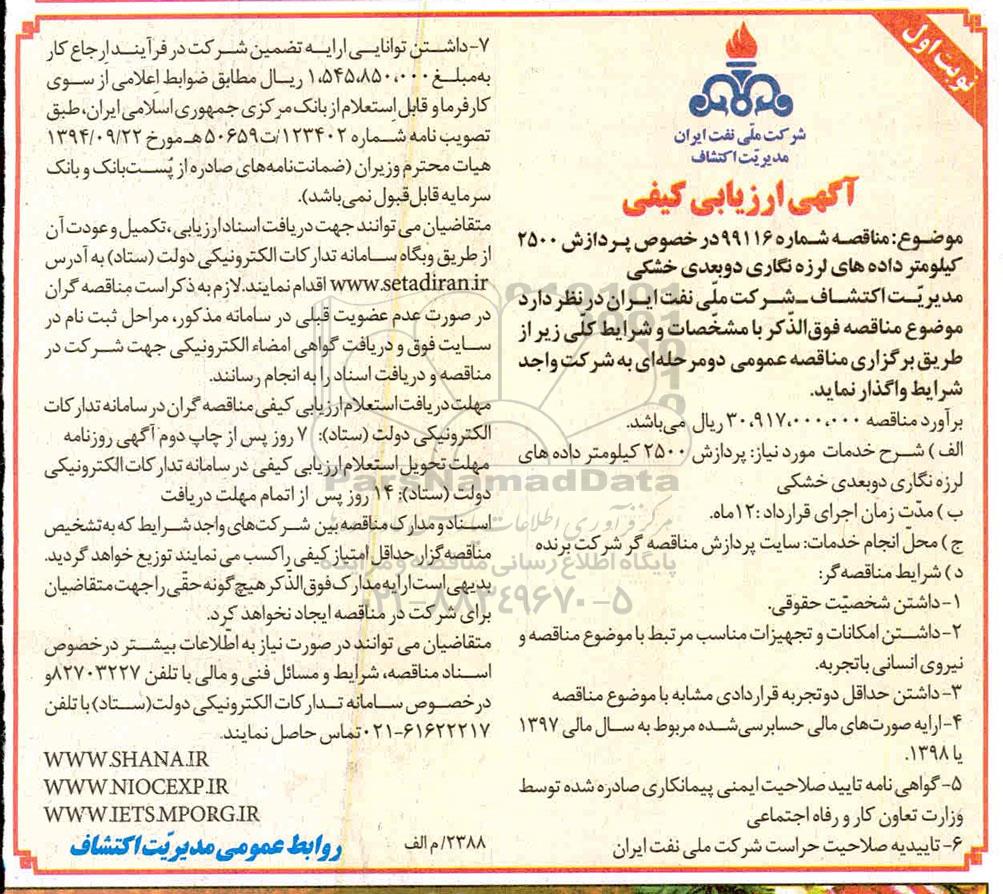 نوبت اول
شرکت ملّی نفت ایران
مدیریّت اکتشاف
آگهی ارزیابی کیفی
موضوع: مناقصه شماره ۹۹۱۱۶ در خصوص پردازش ۲۵۰۰
کیلومتر داده های لرزه نگاری دوبعدی خشکی
مدیریّت اکتشاف ـ شرکت ملّی نفت ایران در نظر دارد
موضوع مناقصه فوق‌الذّکر با مشخّصات و شرایط کلّی زیر از
طریق برگزاری مناقصه عمومی دومرحله‌ای به شرکت واجد
شرایط واگذار نماید.
برآورد مناقصه ۳۰،۹۱۷،۰۰۰،۰۰۰ ریال می‌باشد.
الف ) شرح خدمات مورد نیاز: پردازش ۲۵۰۰ کیلومتر داده های
لرزه نگاری دوبعدی خشکی
ب ) مدّت زمان اجرای قرارداد: ۱۲ماه.
ج ) محلّ انجام خدمات: سایت پردازش مناقصه گر شرکت برنده
د ) شرایط مناقصه‌گر:
۱- داشتن شخصیّت حقوقی.
۲- داشتن امکانات و تجهیزات مناسب مرتبط با موضوع مناقصه و
نیروی انسانی باتجربه.
۳- داشتن حداقل دو تجربه قراردادی مشابه با موضوع مناقصه
۴- ارایه صورت‌های مالی حسابرسی‌شده مربوط به سال مالی ۱۳۹۷
یا ۱۳۹۸.
۵- گواهی نامه تایید صلاحیت ایمنی پیمانکاری صادره شده توسط
وزارت تعاون کار و رفاه اجتماعی
۶- تاییدیه صلاحیت حراست شرکت ملی نفت ایران
۷- داشتن توانایی ارایه تضمین شرکت در فرآیند ارجاع کار
به‌مبلغ ۱،۵۴۵،۸۵۰،۰۰۰ ریال مطابق ضوابط اعلامی از سوی
کارفرما و قابل استعلام از بانک مرکزی جمهوری اسلامی ایران، طبق
تصویب نامه شماره ۱۲۳۴۰۲/ت۵۰۶۵۹هـ مورخ ۱۳۹۴/۰۹/۲۲
هیات محترم وزیران (ضمانت‌نامه‌های صادره از پُست‌بانک و بانک
سرمایه قابل قبول نمی‌باشد).
متقاضیان می توانند جهت دریافت اسناد ارزیابی، تکمیل و عودت آن
از طریق وبگاه سامانه تدارکات الکترونیکی دولت (ستاد) به آدرس
www.setadiran.ir اقدام نمایند. لازم به ذکر است مناقصه گران
در صورت عدم عضویت قبلی در سامانه مذکور، مراحل ثبت نام در
سایت فوق و دریافت گواهی امضاء الکترونیکی جهت شرکت در
مناقصه و دریافت اسناد را به انجام رسانند.
مهلت دریافت استعلام ارزیابی کیفی مناقصه گران در سامانه تدارکات
الکترونیکی دولت (ستاد): ۷ روز پس از چاپ دوم آگهی روزنامه
مهلت تحویل استعلام ارزیابی کیفی در سامانه تدارکات الکترونیکی
دولت (ستاد): ۱۴ روز پس از اتمام مهلت دریافت
اسناد و مدارک مناقصه بین شرکت‌های واجد شرایط که به تشخیص
مناقصه‌گزار حداقل امتیاز کیفی را کسب می نمایند توزیع خواهد گردید.
بدیهی است ارایه مدارک فوق‌الذّکر هیچ‌گونه حقّی را جهت متقاضیان
برای شرکت در مناقصه ایجاد نخواهد کرد.
متقاضیان می توانند در صورت نیاز به اطّلاعات بیشتر درخصوص
اسناد مناقصه، شرایط و مسائل فنی و مالی با تلفن ۸۲۷۰۳۲۲۷ و
درخصوص سامانه تدارکات الکترونیکی دولت(ستاد) با تلفن
۰۲۱-۶۱۶۲۲۲۱۷ تماس حاصل نمایند.
WWW.SHANA.IR
WWW.NIOCEXP.IR
WWW.IETS.MPORG.IR
۲۳۸۸/م الف
روابط عمومی مدیریّت اکتشاف
ParsNamadData
پایگاه اطلاع رسانی مناقصه و مزایده
۰۲۱-۸۸۳۴۹۶۷۰-۵